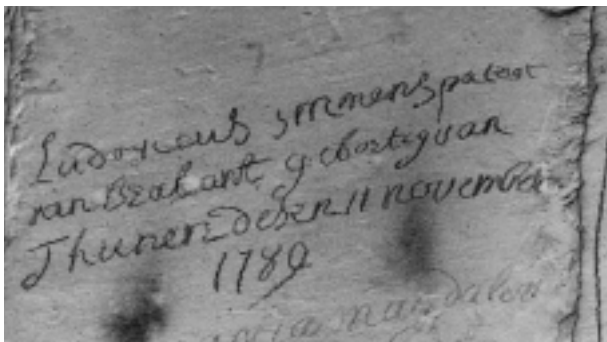 Ludovicus ymmens patriot
van Brabant gebortig van
Thunen desen 11 november
1789